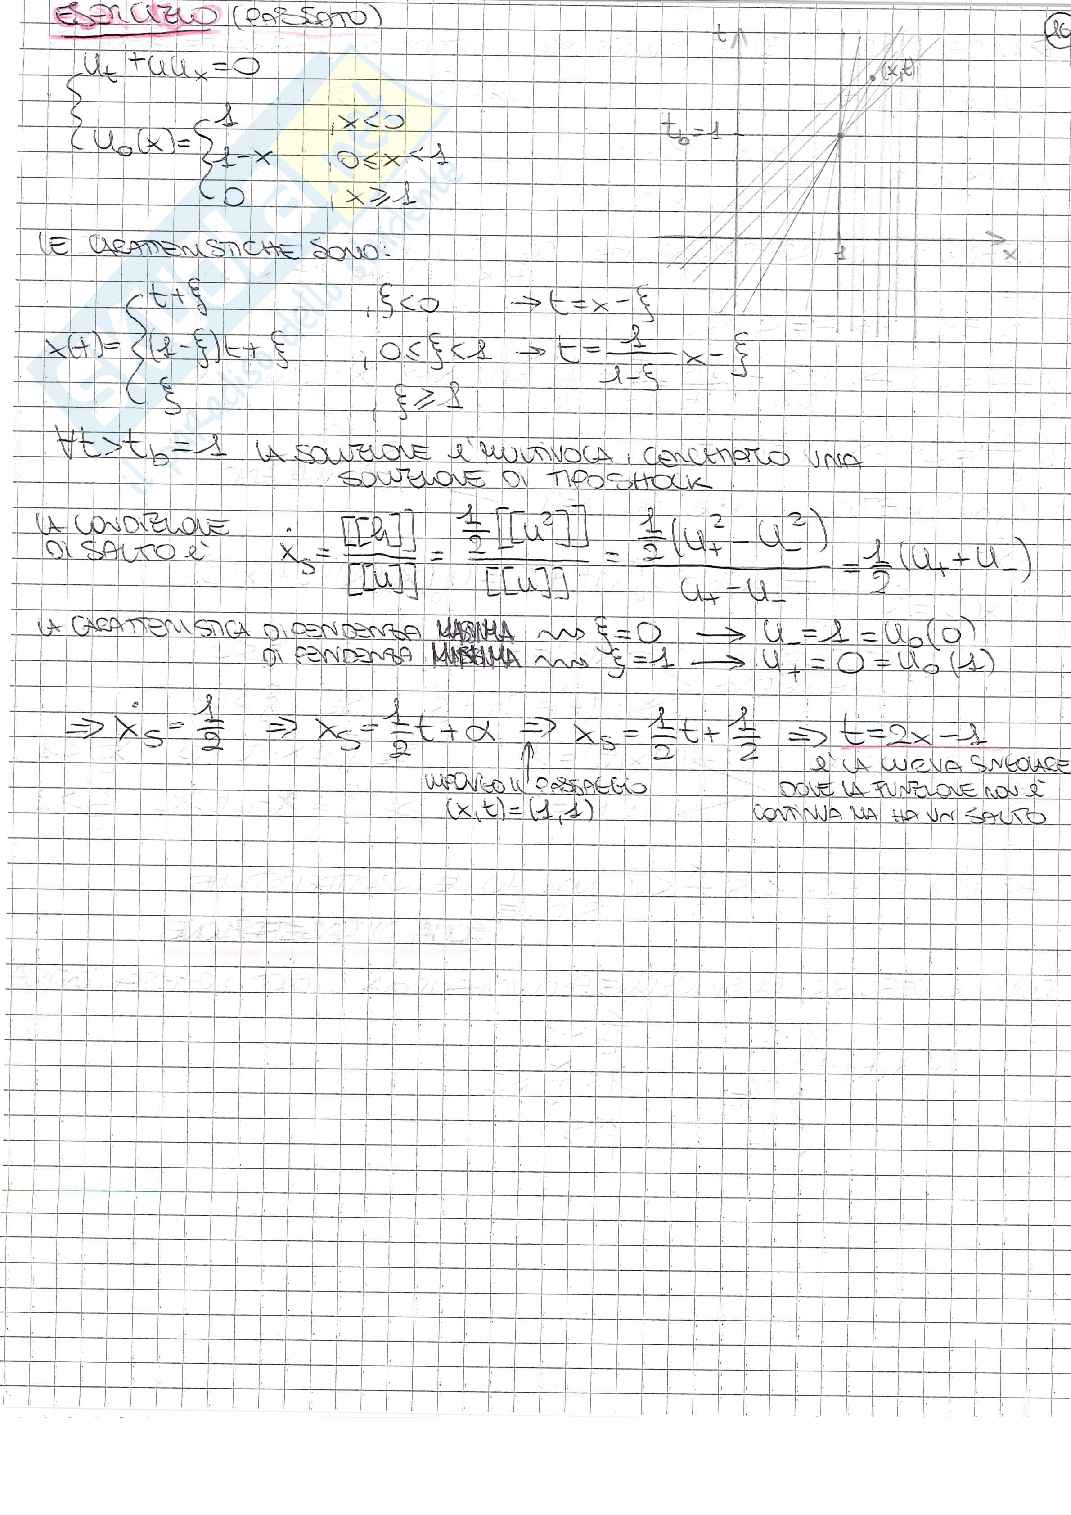 ESERCIZIO (PASSATO)
16
u_t + u u_x = 0
u_0(x) = { 1 , x<0
1-x , 0≤x<1
0 , x≥1
t
(x,t)
t_b=1
1
x
LE CARATTERISTICHE SONO:
x(t) = { t+ξ , ξ<0 → t=x-ξ
(1-ξ)t+ξ , 0≤ξ<1 → t= 1/(1-ξ) x-ξ
ξ , ξ≥1
∀t>t_b=1 LA SOLUZIONE È MULTIVOCA, CERCHIAMO UNA
SOLUZIONE DI TIPO SHOCK
LA CONDIZIONE
DI SALTO È ẋ_s = [[h]]/[[u]] = 1/2 [[u²]]/[[u]] = 1/2 (u₊² - u₋²)/(u₊ - u₋) = 1/2 (u₊ + u₋)
LA CARATTERISTICA DI PENDENZA ⇝ ξ=0 → u₋ = 1 = u_0(0)
DI PENDENZA ⇝ ξ=1 → u₊ = 0 = u_0(1)
⇒ ẋ_s = 1/2 ⇒ x_s = 1/2 t + α ⇒ x_s = 1/2 t + 1/2 ⇒ t=2x-1
IMPONGO IL PASSAGGIO
(x,t)=(1,1)
È LA CURVA SINGOLARE
DOVE LA FUNZIONE NON È
CONTINUA MA HA UN SALTO